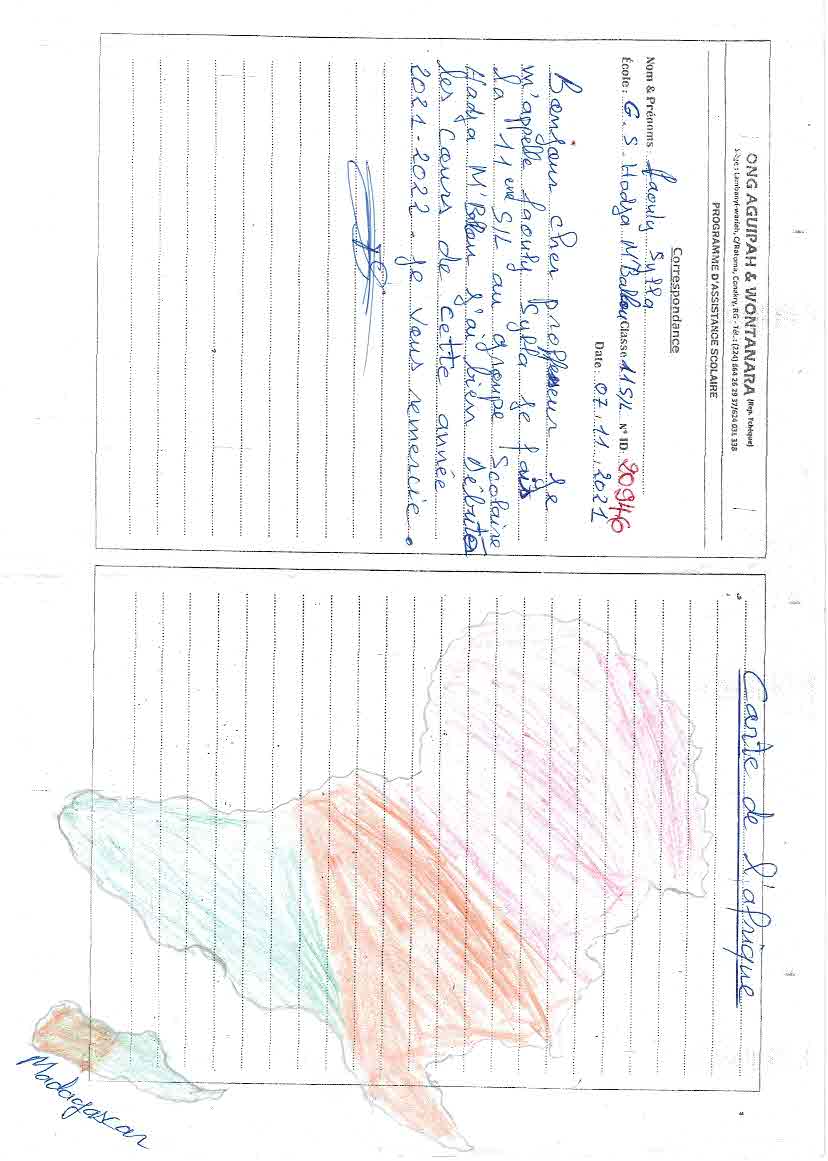 ONG AGUIPAH & WONTANARA (Rep. Tchèque)
Siège : Lambanyi-warlah, C/Ratoma, Conakry, RG - Tél. : (224) 664 26 29 37/624 031 338
PROGRAMME D'ASSISTANCE SCOLAIRE
Correspondance
Nom & Prénoms : faouly Sylla
École : G. S. Hadja M'Balou Classe 11 S/L N° ID: 20946
Date: 07.11.2021
Bonjour cher professeur je
m'appelle faouly Sylla je fais
la 11 eme S/L au groupe Scolaire
Hadja M'Balou j'ai bien Débuté
les Cours de cette année
2021-2022. je vous remercie.
Carte de l'afrique
Madagascar